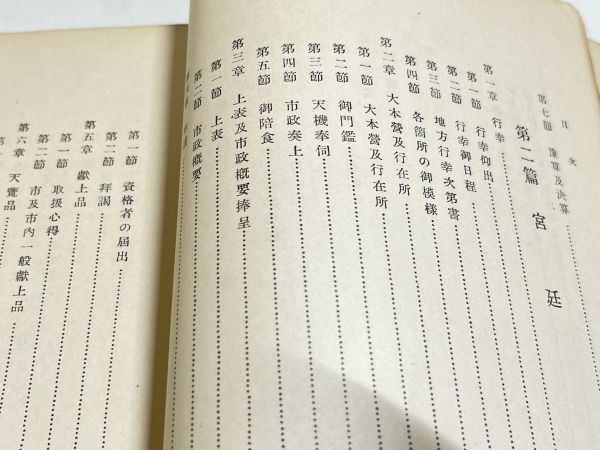 目次
第七節 豫算及決算
第二篇 宮廷
第一章 行幸
第一節 行幸仰出
第二節 行幸御日程
第三節 地方行幸次第書
第四節 各箇所の御模樣
第二章 大本營及行在所
第一節 大本營及行在所
第二節 御門鑑
第三節 天機奉伺
第四節 市政奏上
第五節 御陪食
第三章 上表及市政概要捧呈
第一節 上表
第二節 市政概要
第一節 資格者の屆出
第二節 拜謁
第五章 獻上品
第一節 取扱心得
第二節 市及市內一般獻上品
第六章 天覽品